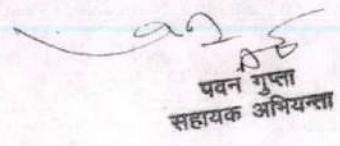 पवन गुप्ता
सहायक अभियन्ता